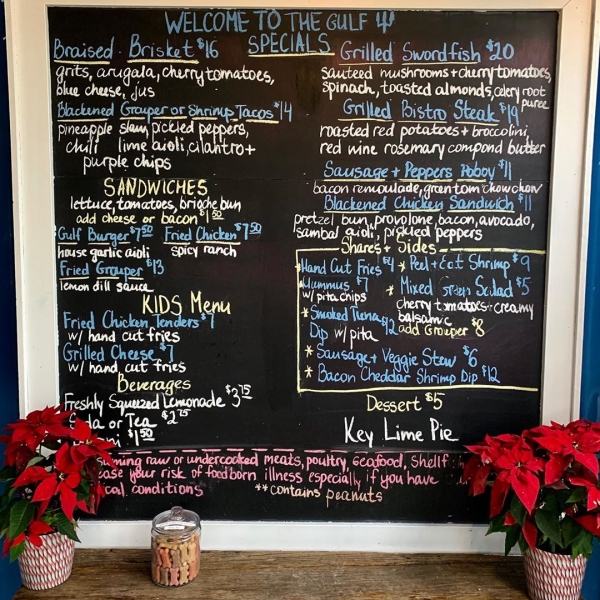 WELCOME TO THE GULF
SPECIALS
Braised Brisket $16
grits, arugala, cherry tomatoes,
blue cheese, jus
Blackened Grouper or Shrimp Tacos $14
pineapple slaw, pickled peppers,
chili lime aioli, cilantro +
purple chips
SANDWICHES
lettuce, tomatoes, brioche bun
add cheese or bacon $1.50
Gulf Burger $7.50 Fried Chicken $7.50
house garlic aioli spicy ranch
Fried Grouper $13
lemon dill sauce
KIDS Menu
Fried Chicken Tenders $7
w/ hand cut fries
Grilled Cheese $7
w/ hand cut fries
Beverages
Freshly Squeezed Lemonade $3.75
Soda or Tea $2.75
$1.50
Grilled Swordfish $20
sauteed mushrooms + cherry tomatoes,
spinach, toasted almonds, celery root
puree
Grilled Bistro Steak $19
roasted red potatoes + broccolini,
red wine rosemary compond butter
Sausage + Peppers Poboy $11
bacon remoulade, green tom chow chow
Blackened Chicken Sandwich $11
pretzel bun, provolone, bacon, avocado,
sambal aioli, pickled peppers
Shares + Sides
Hand Cut Fries $4
Hummus $7
w/ pita chips
* Smoked Tuna $12
Dip w/ pita
* Peel + Eat Shrimp $9
* Mixed Green Salad $5
cherry tomatoes + creamy
balsamic
add Grouper $8
* Sausage + Veggie Stew $6
* Bacon Cheddar Shrimp Dip $12
Dessert $5
Key Lime Pie
raw or undercooked meats, poultry, seafood, shellf
your risk of foodborn illness especially if you have
conditions **contains peanuts